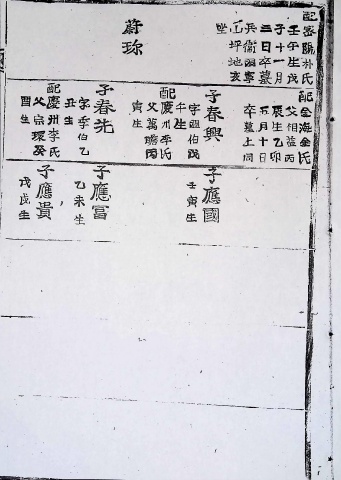 配密陽朴氏
壬午生戊
子十一月
三日卒墓
坪地亥
坐
蔚珍
配金海金氏
父相益丙
辰生乙卯
五月十日
卒墓上同
子春興
字
午生
配慶州李氏
父萬
寅生
子春光
字季伯乙
丑生
配慶州李氏
父宗環癸
酉生
子應國
壬寅生
子應富
乙未生
子應貴
戊戌生